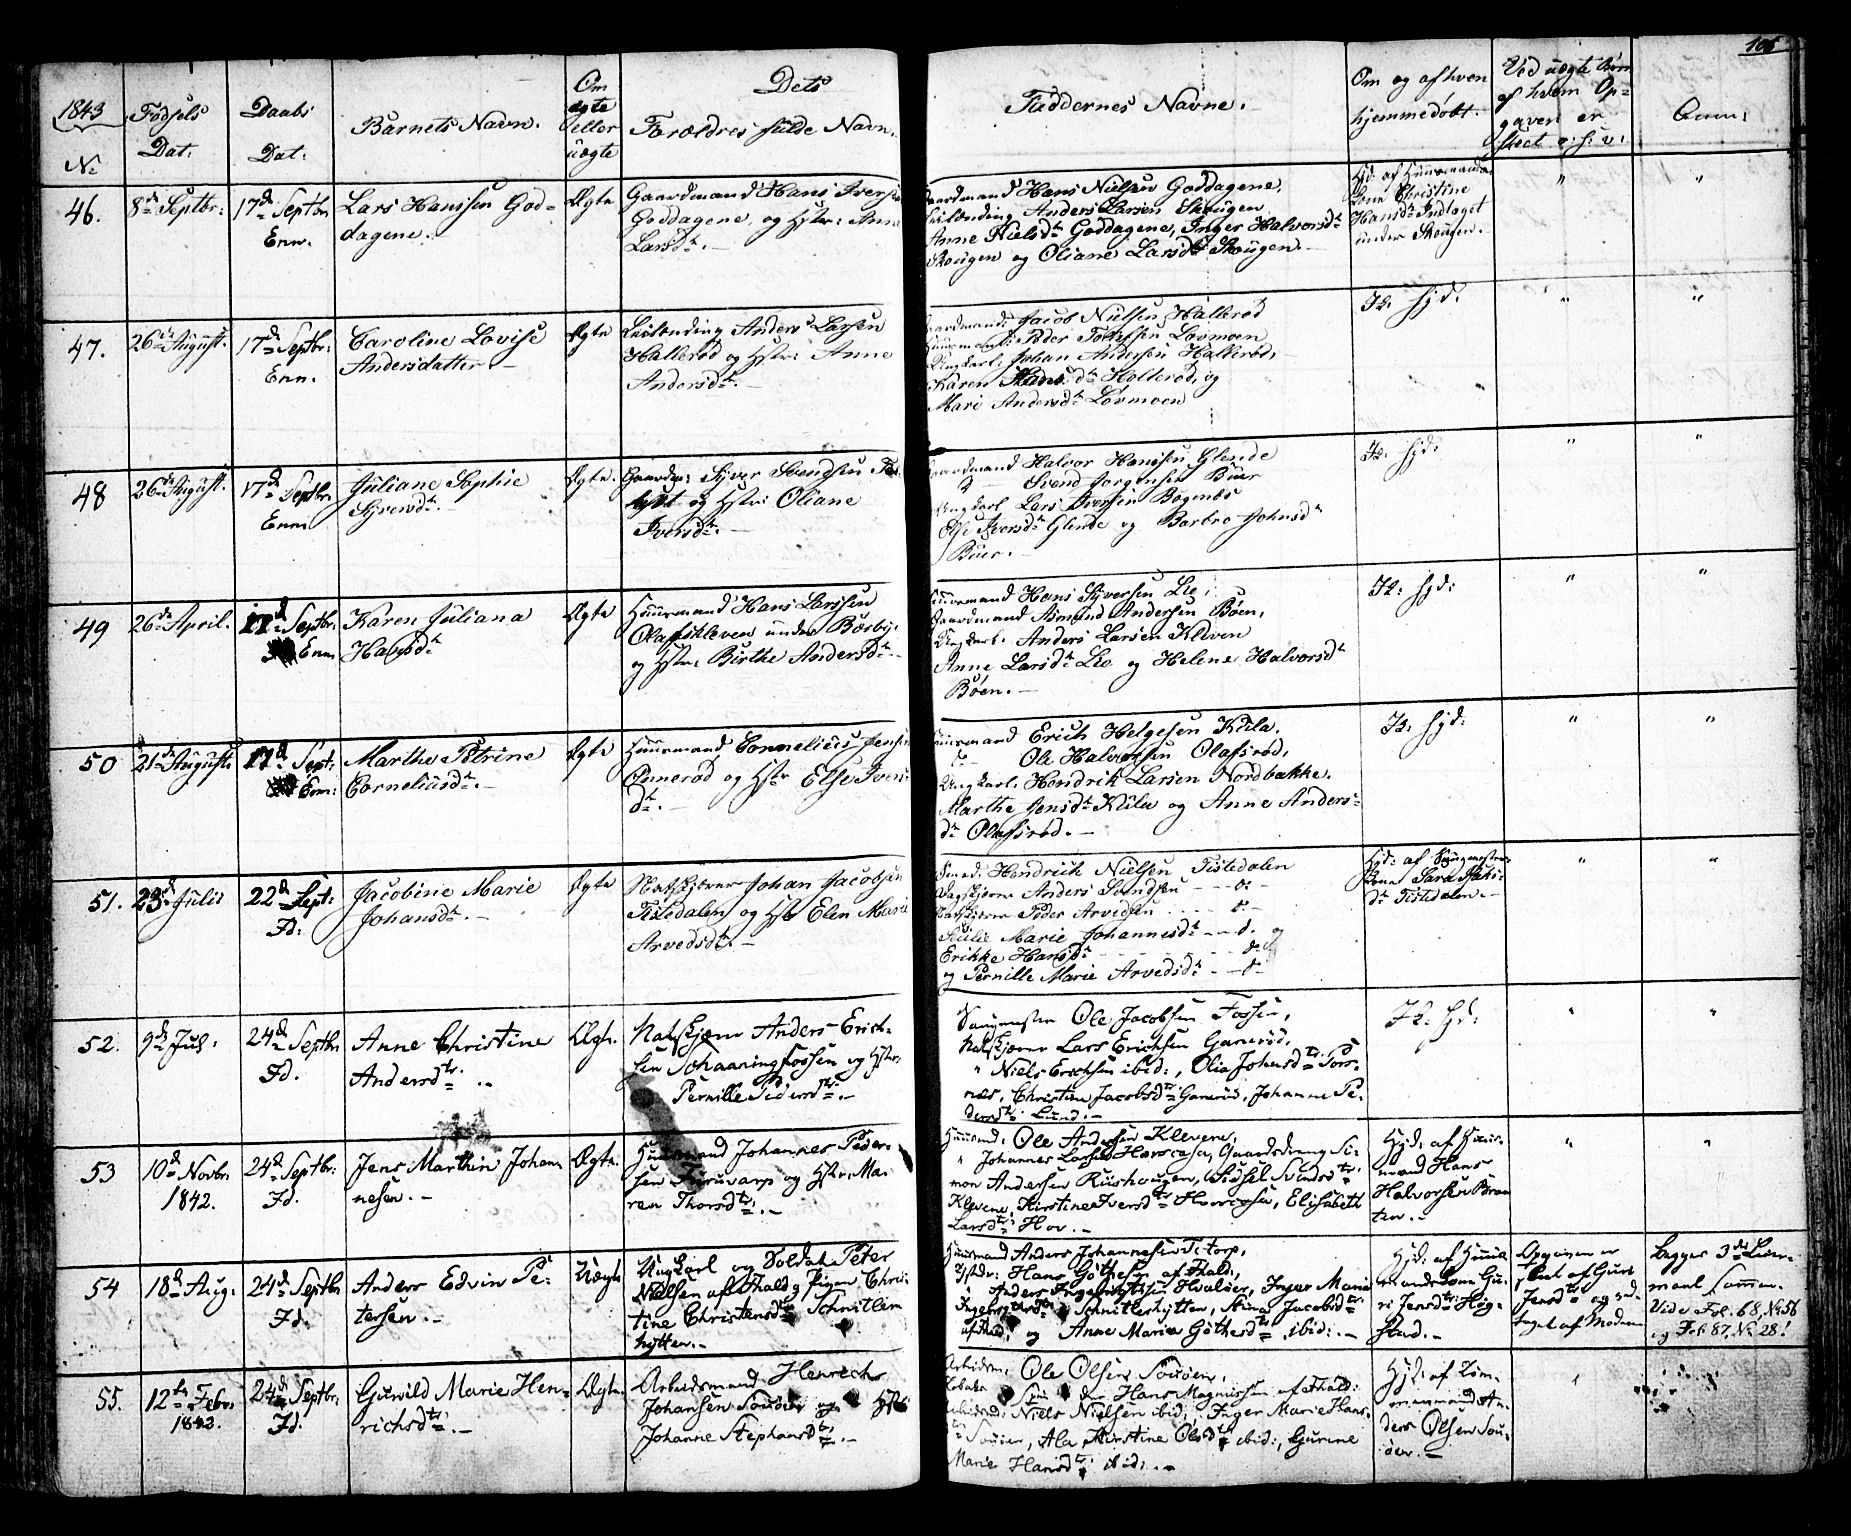 106
1843
No
Fødsels
Dat:
Daabs
Dat:
Barnets Navn.
Om
ægte
eller
uægte
Dets
Forældres fulde Navn.
Faddernes Navne.
Om og af hvem
hjemmedøbt.
Ved uægte Børn
af hvem Op-
gaven er
skeet o: s: v:
Anm:
46.
8de Septbr:
17de Septbr
Enn.
Lars Hanssen God-
dagene.
Ægte
Gaardmand Hans Iversen
Goddagene, og Hstr: Anne
Larsdtr. -
Gaardmand Hans Nielsen Goddagene,
Anders Larsen Skougen
Anne Nielsdtr Goddagene, Inger Halvorsdtr
Skougen og Oliane Larsdtr Skougen. -
Hd: af Huusmands
Kone Christine
Hansdtr Indlaget
under Skougen. -
"
"
47.
26de August.
17de Septbr:
Enn.
Caroline Lovise
Andersdatter -
Ægte
Anders Larsen
Hallerød og Hstr: Anne
Andersdtr. -
Gaardmand: Jacob Nielsen Hallerød
Huusmand: Peder Løvmoen
Ungkarl: Johan Andersen Hallerød,
Karen dtr Holterød, og
Mari Andersdtr Løvmoen
Ik: hjd:
"
"
48
26de August.
17de Septbr.
Enn
Juliane Sophie
Syversdtr. -
Ægte.
Gaardm: Syver Svendsen
og Hstr: Oliane
Iversdtr. -
Gaardmand Halvor Hanssen Glende
Svend Jørgensen Buer
Ungkarl Lars Iversen Bøgenæs
Else Iversdtr Glende og Barbro Johnsdtr
Buer. -
Ik: hjd:
"
"
49
26de April.
17de Septbr.
Enn
Karen Juliana
Hansdtr
Ægte
Huusmand Hans Larssen
Olafskleven under Børby.
og Hstr: Birthe Andersdtr. -
Huusmand Hans Syversen Lie,
Gaardmand Asmund Andersen Bøen,
Ungkarl: Anders Larsen Kleven
Anne Larsdtr Lie og Helene Halvorsdtr
Bøen. -
Ik: hjd:
"
"
50
21de August.
17de Sept:
Enn:
Marthe Petrine
Corneliusdtr. -
Ægte
Huusmand Cornelius Jensen
Onnerød og Hstr Else Ivers
dtr. -
Huusmand Erich Helgesen Kula.
Ole Halvorsen Olafsrød,
Ungkarl. Hendrik Larsen Nordbække.
Marthe Jensdtr Kula og Anne Anders-
dtr Olafsrød. -
Ik: hjd:
"
"
51.
23de Julii
22de Sept:
Fd:
Jacobine Marie
Johansdtr. -
Ægte
Natskjærer Johan Jacobsen
Tistedalen og Hstr Elen Marie
Arvedsdtr. -
Smed. Hendrich Nielsen Tistedalen
Dagskjærer Anders Svendsen - - do -
Natskjærer Peder Arvedsen - - - do -
Marie Johannesdtr - - do. og
Erikke Hansdtr - - - - do
og Pernille Marie Arvedsdtr - - do
Hjd: af Saugmester
Kone Sara
dtr Tistedalen. -
"
"
52.
9de Jul:
24de Septbr
Fd.
Anne Christine
Andersdtr: -
Ægte.
Natskjærer Anders Erich-
sen Schaaningfossen og Hstr.
Pernille Pedersdtr: -
Saugmester Ole Jacobsen Fossen,
Natskjærer Lars Erichsen Ganerød,
" Niels Erichsen ibid:, Olia Johnsdtr: Tors-
næs, Christine Jacobsdtr Ganerød, Johanne Pe-
dersdtr: Lund. -
Ik: hjd:
"
"
53
10de Novbr.
1842.
24de Septbr:
Fd.
Jens Marthin Johan-
nesen. -
Ægte.
Huusmand Johannes Peder-
sen Furuvarp og Hstr. Ma-
ren Thorsdtr: -
Huusmd: Ole Andersen Klevene,
" Johannes Larsen Gaardsdreng Si-
mon Andersen Rushougen, Sidsel Svendsdtr:
Klevene, Kirstine Iversdtr Elisabeth
Larsdtr: Hov. -
Hjd: af Huus-
mand Hans
Halvorsen Braa-
ten. -
"
"
54
18de Aug:
24de Septbr
Fd.
Anders Edvin Pe-
tersen. -
Uægte
Ungkarl og Soldat Peter
Nielsen af Fhald, Pigen Chris-
tine Christensdtr Schnitler-
hytten. -
Huusmand Anders Johannesen Tistorp,
Hans Göthesen af Fhald:,
" Anders Ingebrigtsen Hvalsøer, Inger Marie
Ingebrigtsdtr Schnitlerhytten, Stina Jacobsdtr:
af Fhd: og Anne Marie Göthesdtr: ibid: -
Hjd: af Huus-
mandskone Gu-
ri Jensdtr: Høg-
stad. -
Opgivən er
skeet af Guri
Jensdtr og ved-
taget af Moderen
Begges 3de Leier-
maal sammen.
Vide Fol. 68, No 56
og Fol 87, No 28!
55.
12te Febr.
1842.
24de Septbr.
Fd.
Gunild Marie Hen-
richsdtr: -
Ægte.
Arbeidsmand Henrich
Johansen Souøen og Hstr:
Johanne Stephansdtr: -
Arbeidsm: Ole Olsen Souøen,
Hans Magnussen af Fhald:
Arbeidsmd: Niels Nielsen ibid:, Inger Marie Hans-
dtr Souøen, Ala Kirstine Olsdtr ibid:, Gurine
Marie Hansdtr: ibid: -
Hjd: af Tøm-
mermand An-
ders Olsen Sou-
øen. -